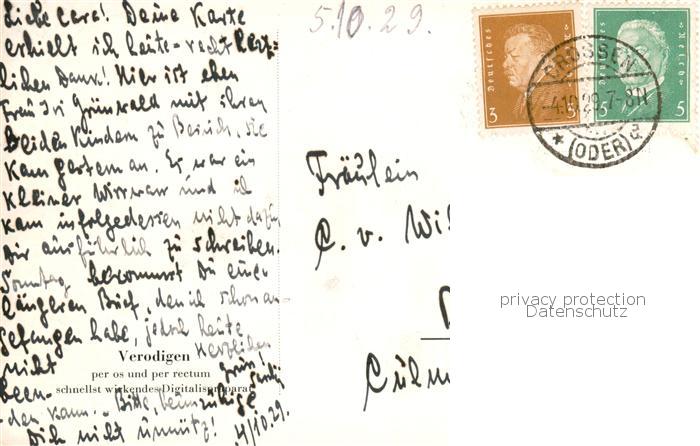 Liebe Cara! Deine Karte
erhielt ich heute - recht herz-
lichen Dank! Hier ist eben
Frau Grünwald mit ihren
beiden Kindern zu Besuch, sie
kam gestern an. Es war ein
kleiner Wirrwarr und ich
kam infolgedessen nicht dazu
Dir ausführlich zu schreiben.
Sonntag bekommst Du einen
längeren Brief, den ich schon an-
gefangen habe, jedoch heute
nicht
been-
den kann. - Bitte, beunruhige
Dich nicht unnütz! 4/10.29.
Herzlichen
Gruß!
Verodigen
per os und per rectum
schnellst wirkendes Digitalispräparat
5.10.29.
Deutsches Reich
3 3
Deutsches Reich
5 5
CROSSEN
-4.10.29.7-8N
* (ODER) a
Fräulein
C. v. Wi
Culm
privacy protection
Datenschutz